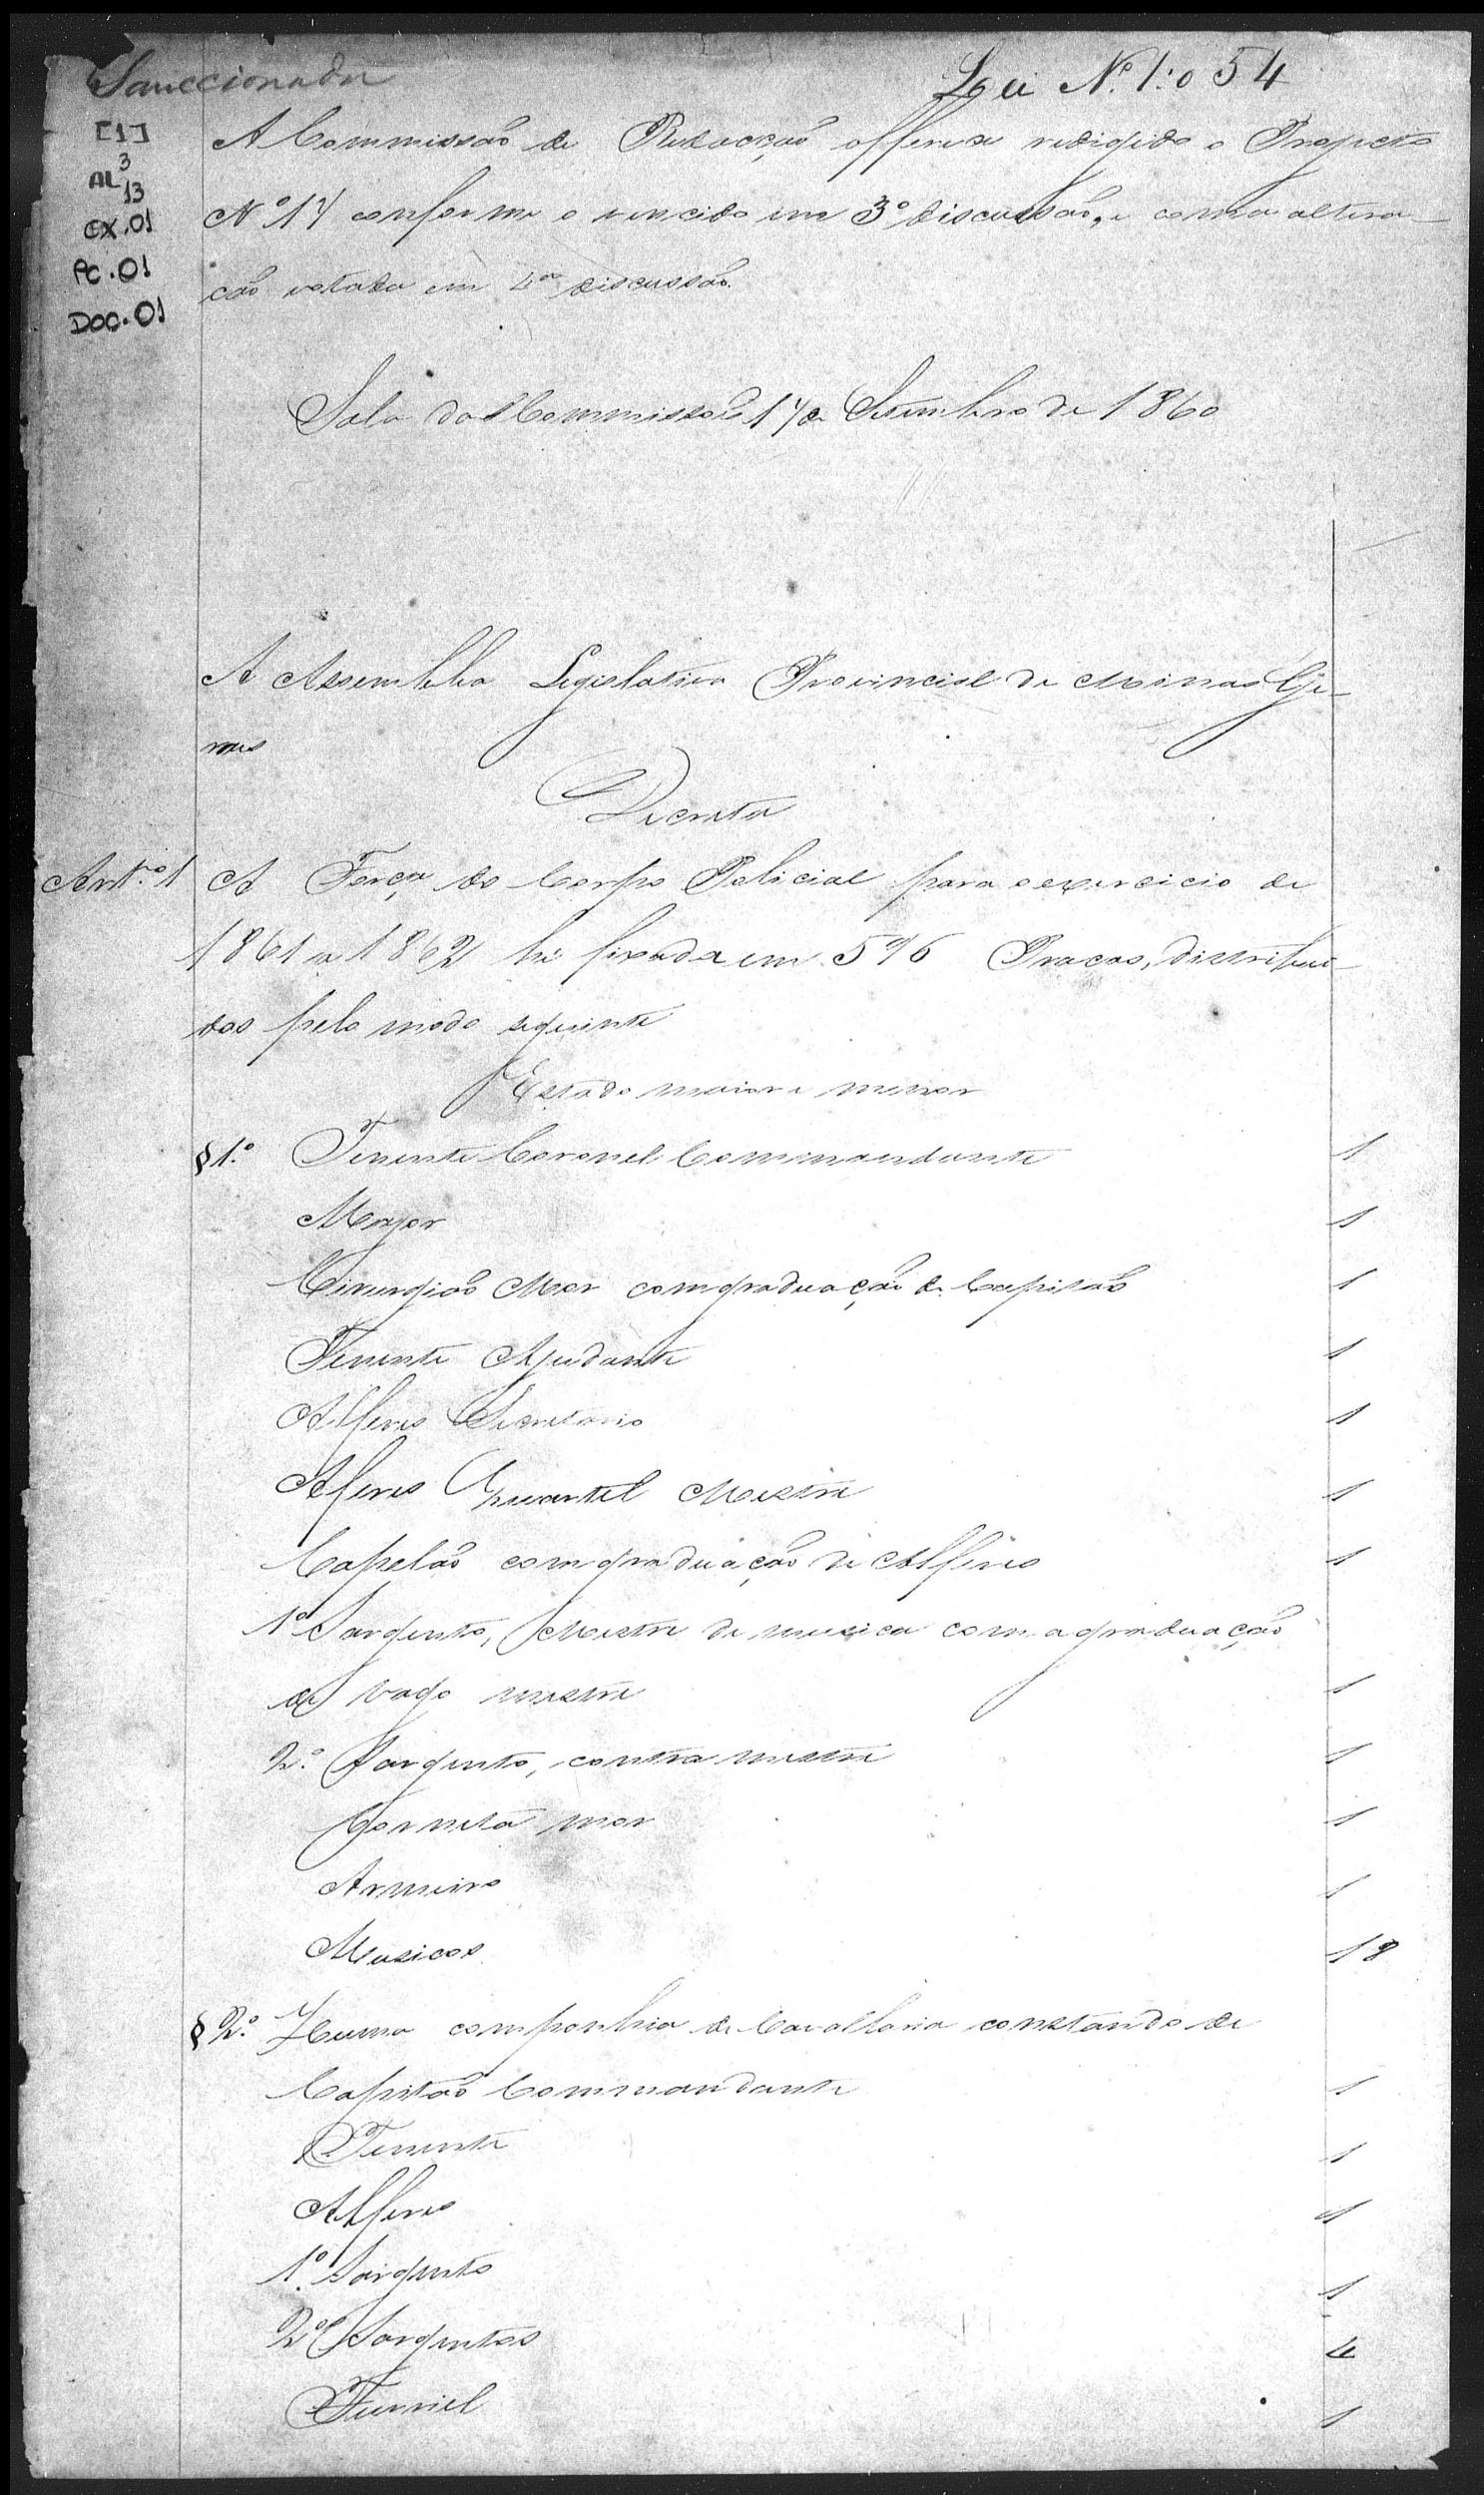 Sanccionada
Lei Nº 1:054
[1]
AL 3
13
CX.01
PC.01
DOC.01
A Commissaõ de Redacçaõ offerece redigido o Projecto
Nº 17 conforme o vencido em 3ª discussaõ, e com a altera-
çaõ votada em 4ª discussaõ.
Sala das Commissoẽs 17 de Setembro de 1860
A Assemblea Legislativa Provincial de Minas Ge-
raes
Decreta
Artº 1 A Força do Corpo Policial para o exercicio de
1861 a 1862 he fixada em 596 Praças, distribui-
das pelo modo seguinte
Estado maior e menor
§ 1.º Tenente Coronel Commandante 1
Major 1
Cirurgiaõ Mor com graduaçaõ de Capitaõ 1
Tenente Ajudante 1
Alferes Secretario 1
Alferes Quartel Mestre 1
Capelaõ com graduaçaõ de Alferes 1
1º Sargento, Mestre de musica com a graduaçaõ
de vago mestre 1
2.º Sargento, contra mestre 1
Corneta mor 1
Armeiro 1
Musicos 18
§ 2.º Huma companhia de Cavallaria constando de
Capitaõ Commandante 1
Tenente 1
Alferes 1
1.º Sargento 1
2ºs Sargentos 4
Furriel 1